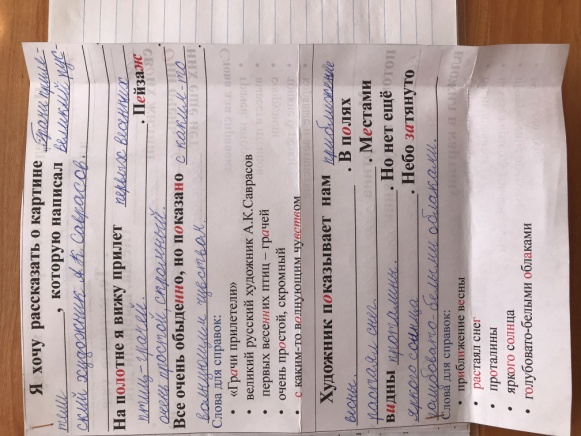 Я хочу рассказать о картине „Грачи приле-
тели“, которую написал великий рус-
ский художник А.К. Саврасов.
На полотне я вижу прилет первых весенних
птиц-грачей. Пейзаж
очень простой, скромный.
Все очень обыденно, но показано с каким-то
волнующим чувством.
Слова для справок:
• «Грачи прилетели»
• великий русский художник А.К.Саврасов
• первых весенних птиц – грачей
• очень простой, скромный
• с каким-то волнующим чувством
Художник показывает нам приближение
весны. В полях
растаял снег. Местами
видны проталины. Но нет ещё
яркого солнца. Небо затянуто
голубовато-белыми облаками.
Слова для справок:
• приближение весны
• растаял снег
• проталины
• яркого солнца
• голубовато-белыми облаками